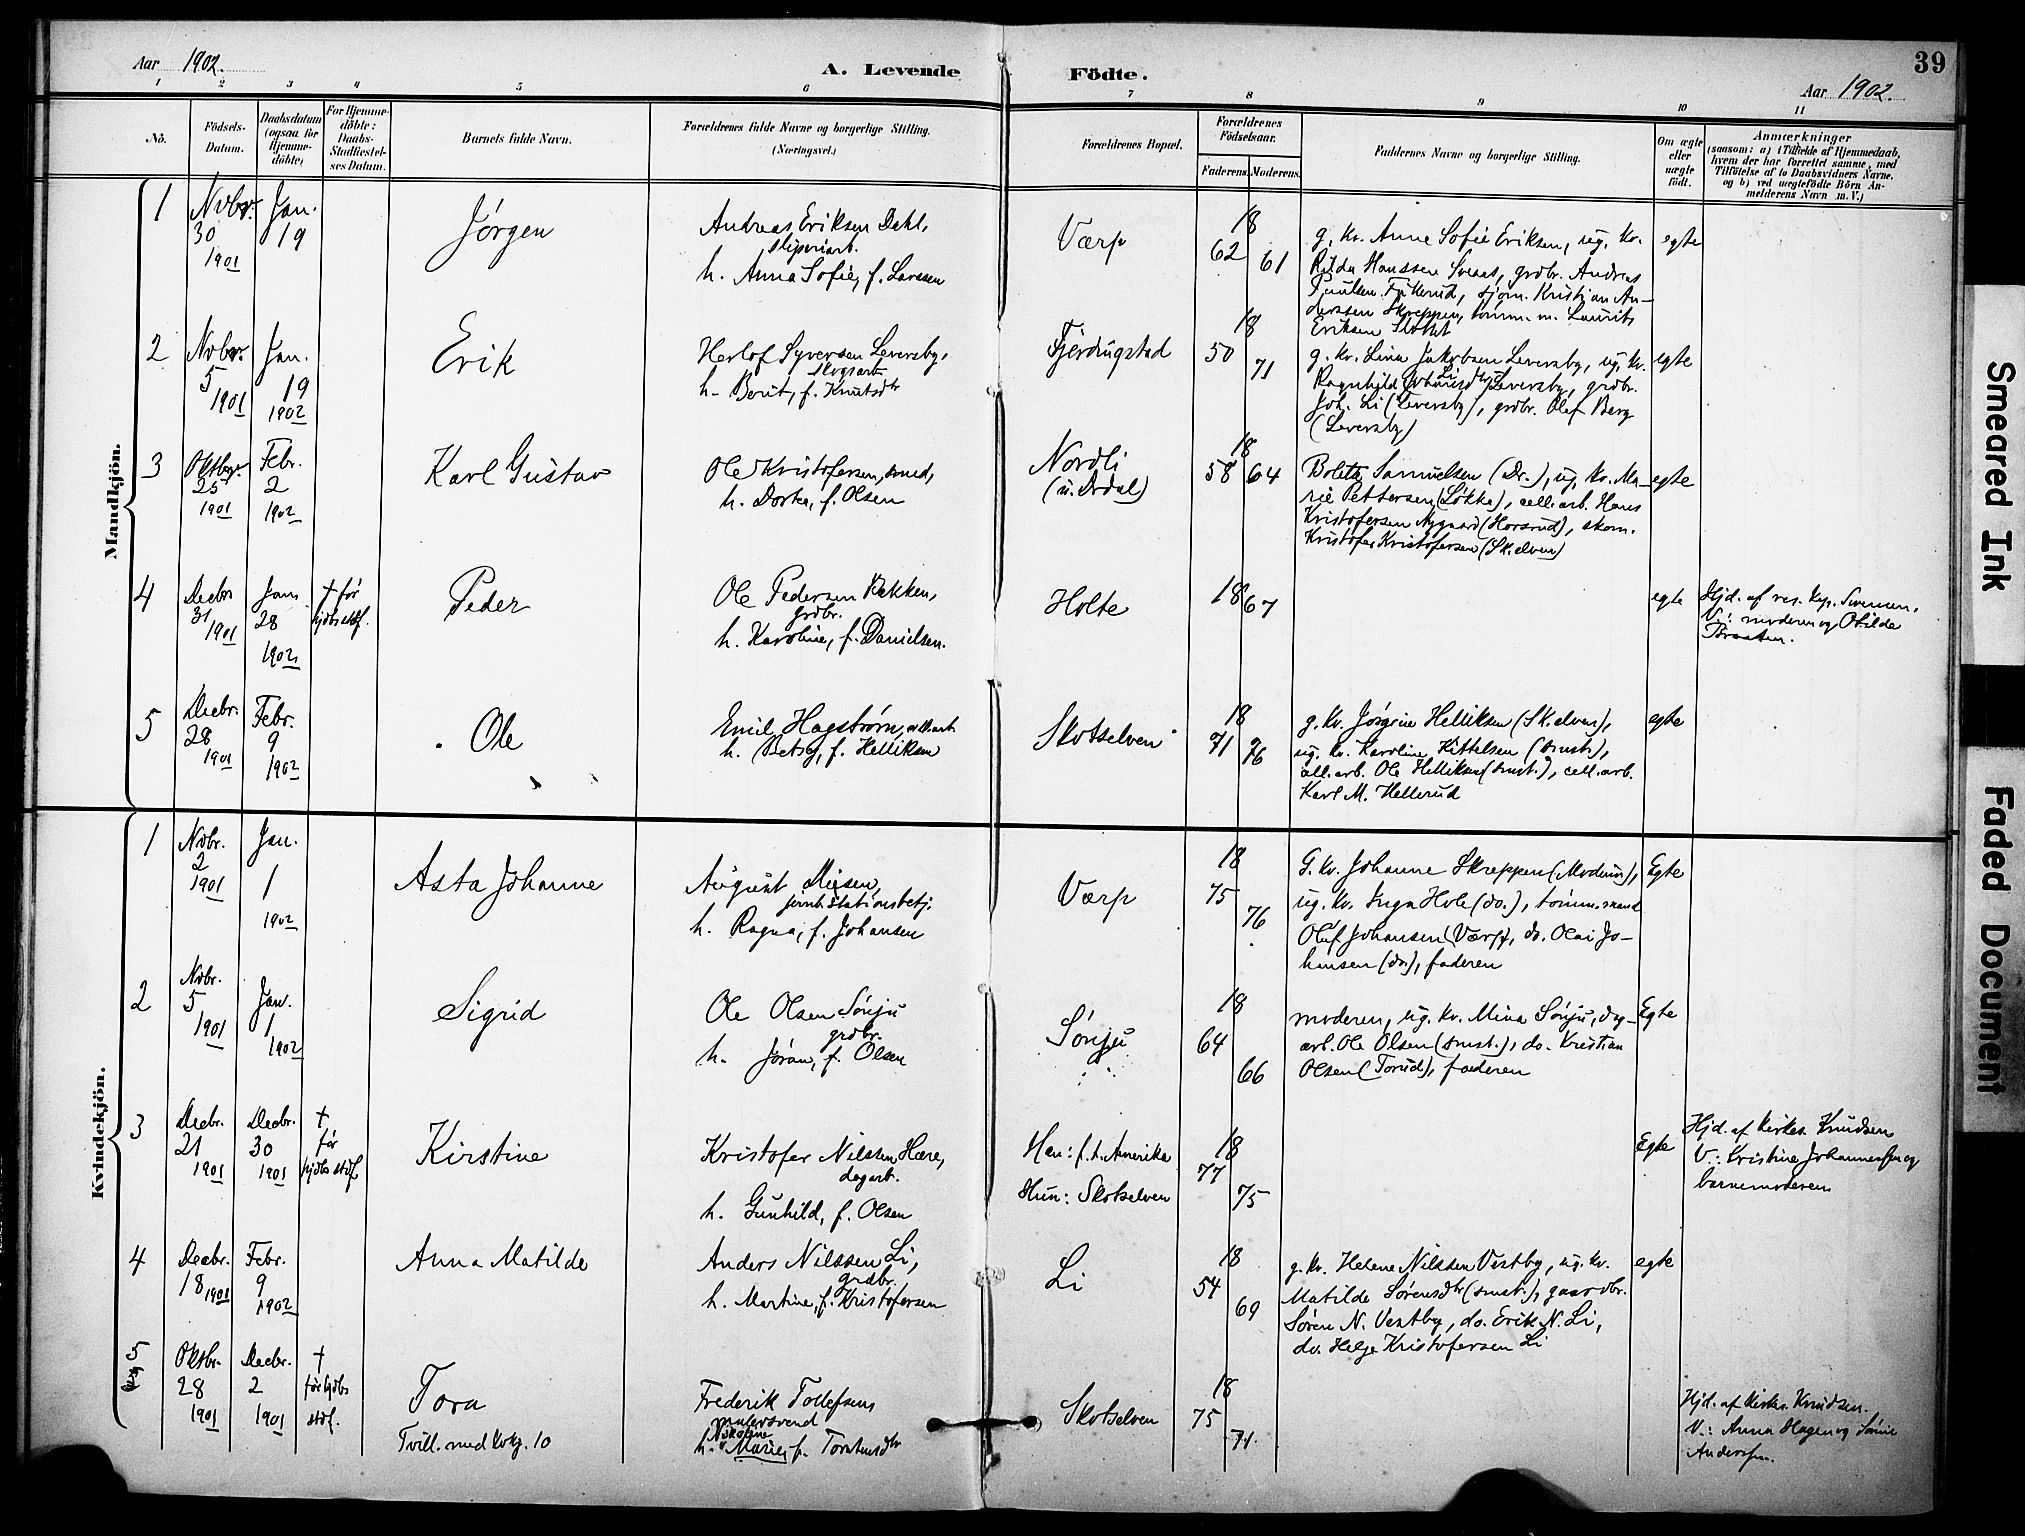 Aar 1902.
A. Levende Födte.
39
Aar 1902.
1 2 3 4 5 6 7 8 9 10 11
No.
Födsels-Datum.
Daabsdatum (ogsaa for Hjemmedöbte)
For Hjemmedöbte: Daabs-Stadfæstelses Datum.
Barnets fulde Navn.
Forældrenes fulde Navne og borgerlige Stilling. (Næringsvei.)
Forældrenes Bopæl.
Forældrenes Födselsaar.
Faderens. Moderens.
Faddernes Navne og borgerlige Stilling.
Om ægte eller uægte födt.
Anmærkninger
(saasom: a) i Tilfælde af Hjemmedaab,
hvem der har forrettet samme, med
Tilföielse af to Daabsvidners Navne,
og b) ved uægtefödte Börn Anmelderens Navn m. V.)
Mandkjön.
1
Novbr. 30 1901
Jan. 19
Jørgen
Andreas Eriksen Dahl,
sliperiarb.
h. Anna Sofie, f. Larssen
Værp
18
62 61
g. kv. Anne Sofie Eriksen, ug. kv.
Hanssen Sveaas, grdbr. Andreas
Paulsen, sjøm. Kristian An-
derssen Skreppen, tømm.m. Laurits
Eriksen
egte
2
Novbr. 5 1901
Jan. 19 1902
Erik
Herlof Syversen Leversby,
skogsarb.
h. Berit, f. Knutsdtr
Fjerdingstad
18
50 71
g. kv. Lina Jakobsen Leversby, ug. kv.
Ragnhild Leversby, grdbr.
Joh. Li (Leversby), grdbr. Olaf Berg
(Leversby)
egte
3
Oktbr. 25 1901
Febr. 2 1902
Karl Gustav
Ole Kristofersen, smed,
h. Dorka, f. Olsen
Nordli
(u. Ordal)
18
58 64
Bolette Samuelsen (Dr.), ug. kv. Ma-
rie Pettersen (Løkka), cell.arb. Hans
Kristofersen Nygaard (Horsrud), skom.
Kristofer Kristofersen (Sk.elven)
egte
4
Decbr 31 1901
Jan. 28 1902
† før
hjdbs stdf.
Peder
Ole Pedersen Bakken,
grdbr.
h. Karoline, f. Danielsen.
Holte
18 67
egte
Hjd. af res. kap.
V.: moderen og Otilde
Braaten.
5
Decbr. 28 1901
Febr. 9 1902
Ole
Emil Hagstrøm, cell.arb
h. Betsy, f. Helliksen
Skotselven
18
71 76
g. kv. Jørgine Helliksen (Sk.elven),
ug. kv. Karoline Kittelsen (smst.),
cell.arb. Ole Helliksen (smst.), cell.arb.
Karl M. Hellerud
egte
Kvindekjön.
1
Novbr. 2 1901
Jan. 1 1902
Asta Johanne
August Miesen,
jernb.stationsbetj.
h. Ragna, f. Johansen
Værp
18
75 76
G. kv. Johanne Skreppen (Modum),
ug. kv. Inga Hole (do.), tømm.mand
Oluf Johansen (Værp), do. Olai Jo-
hansen (do), faderen
Egte
2
Novbr. 5 1901
Jan. 1 1902
Sigrid
Ole Olsen Sønju
grdbr.
h. Jøran, f. Olsen
Sønju
18
64 66
moderen, ug. kv. Mina Sønju, dag-
arb. Ole Olsen (smst.), do. Kristian
Olsen (Torud), faderen
Egte
3
Decbr. 21 1901
Decbr. 30 1901
† før
hjdbs stdf
Kirstine
Kristofer Nilssen Hære,
dagarb.
h. Gunhild, f. Olsen
Han: f. t. Amerika
Hun: Skotselven
18
77 75
Egte
Hjd. af kirkes. Knudsen
V.: Kristine Johannessen og
barnemoderen
4
Decbr. 18 1901
Febr. 9 1902
Anna Matilde
Anders Nilssen Li,
grdbr.
h. Martine, f. Kristofersen
Li
18
54 69
g. kv. Helene Nilssen Vestby, ug. kv.
Matilde Sørensdtr (smst.), gaardbr.
Søren N. Vestby, do. Erik N. Li,
do. Helge Kristofersen Li
egte
5
Oktbr. 28 1901
Decbr. 2 1901
†
før hjdbs
stdf.
Tora
Tvill. med kvkj. 10
Frederik Tollefsen,
malersvend
Nikoline
h. Marie, f. Torstensdtr
Skotselven
18
75 71.
Hjd. af kirkes. Knudsen.
V.: Anna Hagen og Sørine
Anderssen.
Smeared Ink
Faded Document